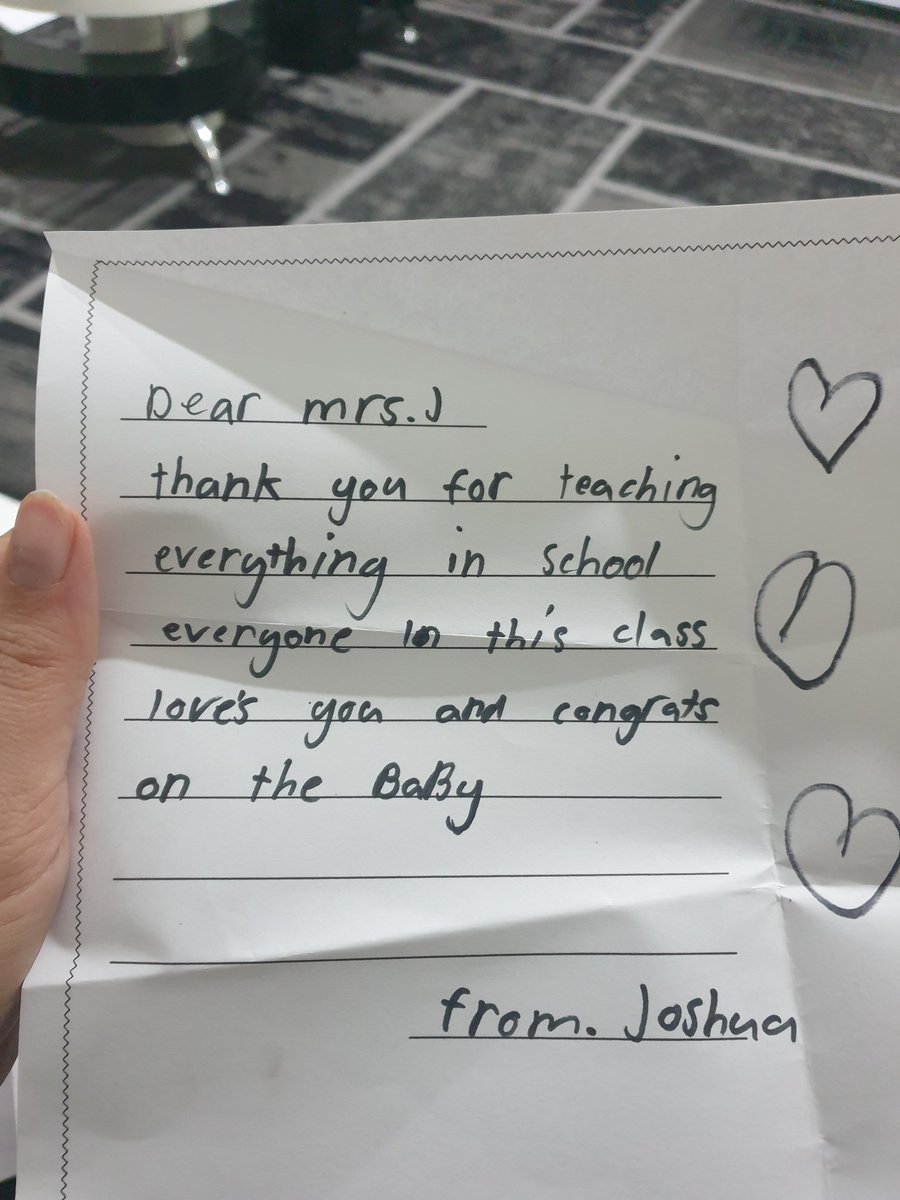 Dear mrs.J
thank you for teaching
everything in school
everyone in this class
love's you and congrats
on the BaBy
from. Joshua